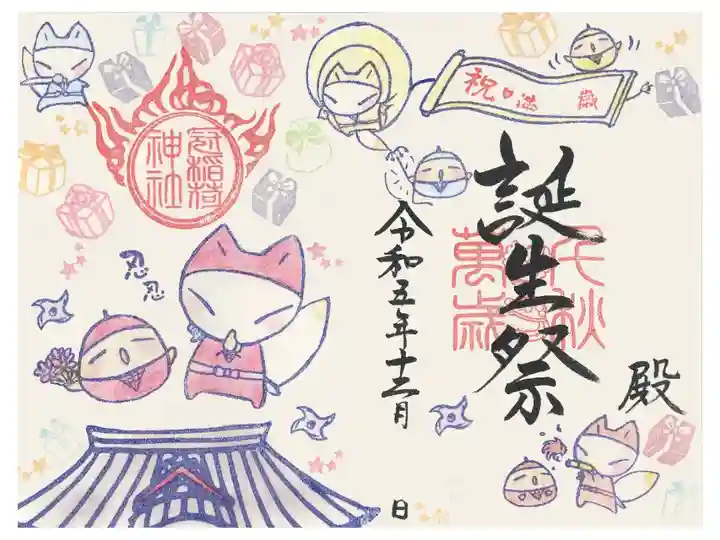 祝 満 歳
冠稲荷
神社
殿
誕生祭
千秋
萬歳
令和五年十二月 日
忍
忍